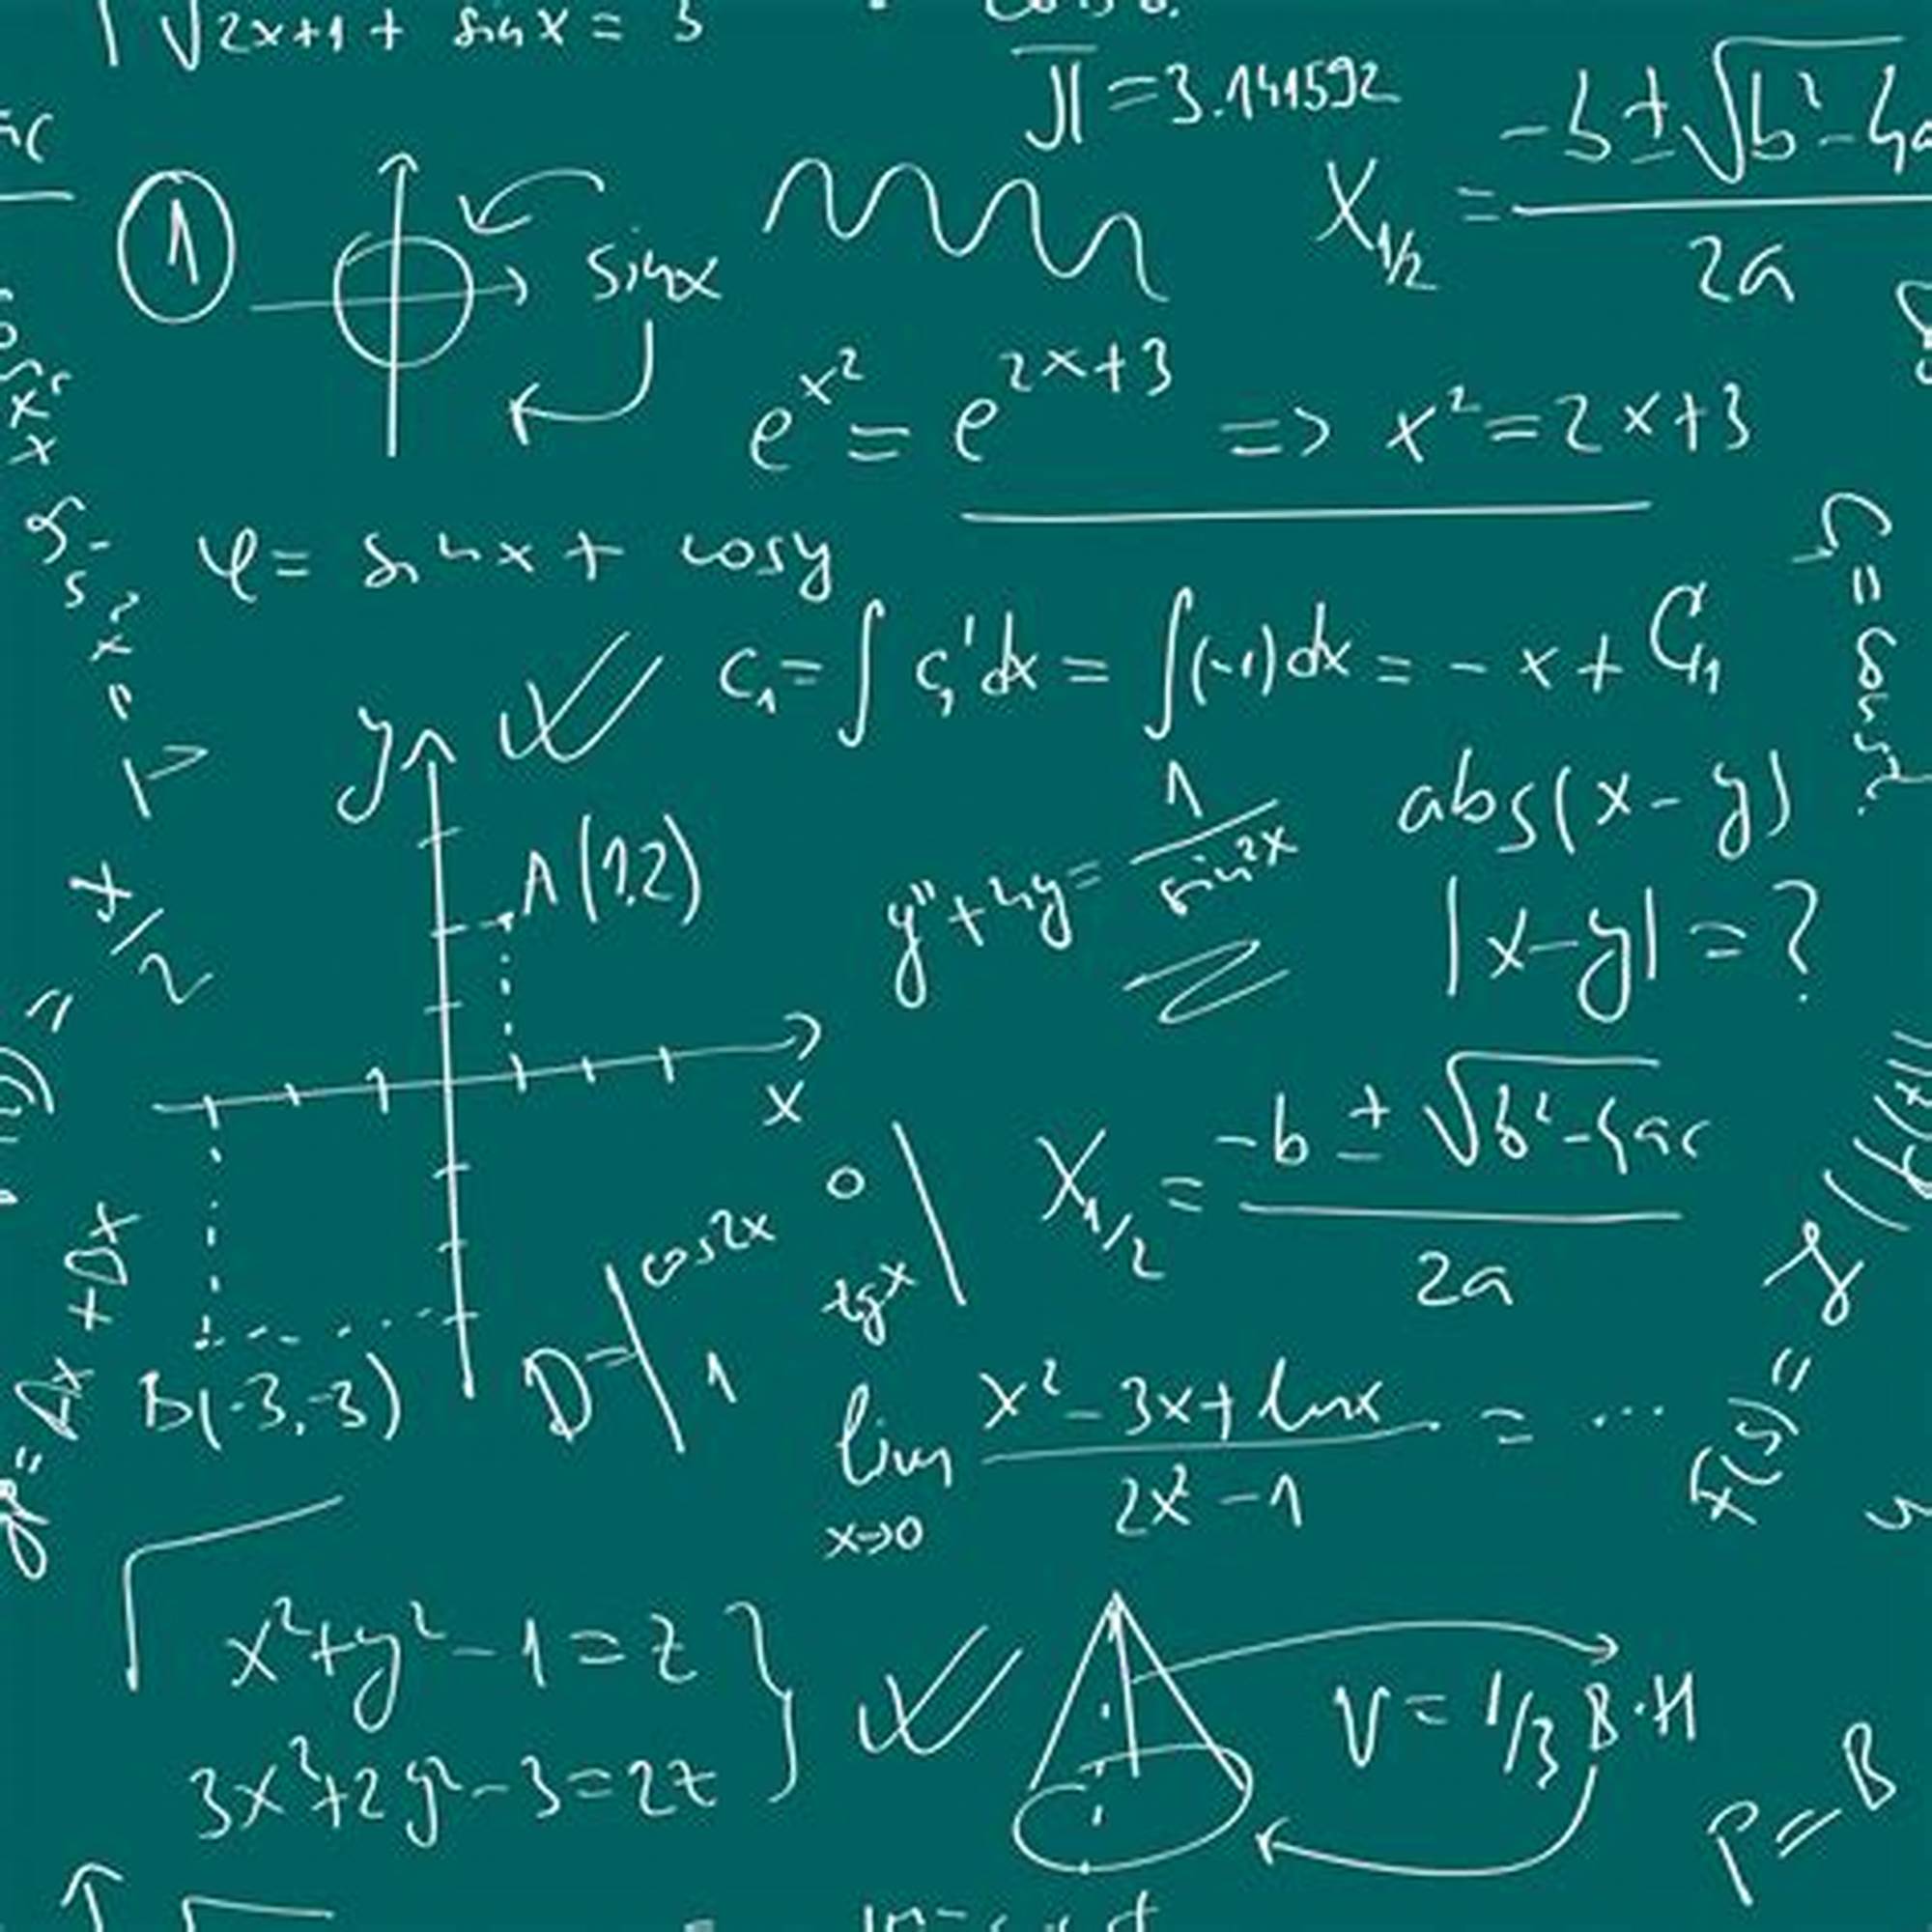 √2x+1 + sin x = 3
π = 3.141592
X1/2 = -b ± √b² - 4a
2a
1
sinx
e^x² = e^2x+3 => x² = 2x+3
φ = sinx + cosy
C₁ = ∫ C₁' dx = ∫(-1)dx = - x + C₁
y
A(1,2)
abs(x - y)
y'' + 4y = 1/sin²x
|x-y| = ?
x/2
x
X1/2 = -b ± √b² - 4ac
2a
D = | cos2x 0
1 tgx |
B(-3,-3)
lim x→0 x² - 3x + lnx / 2x² - 1 = ...
f(y) =
x² + y² - 1 = z
3x³ + 2y² - 3 = 2z
V = 1/3 B·H
P = B